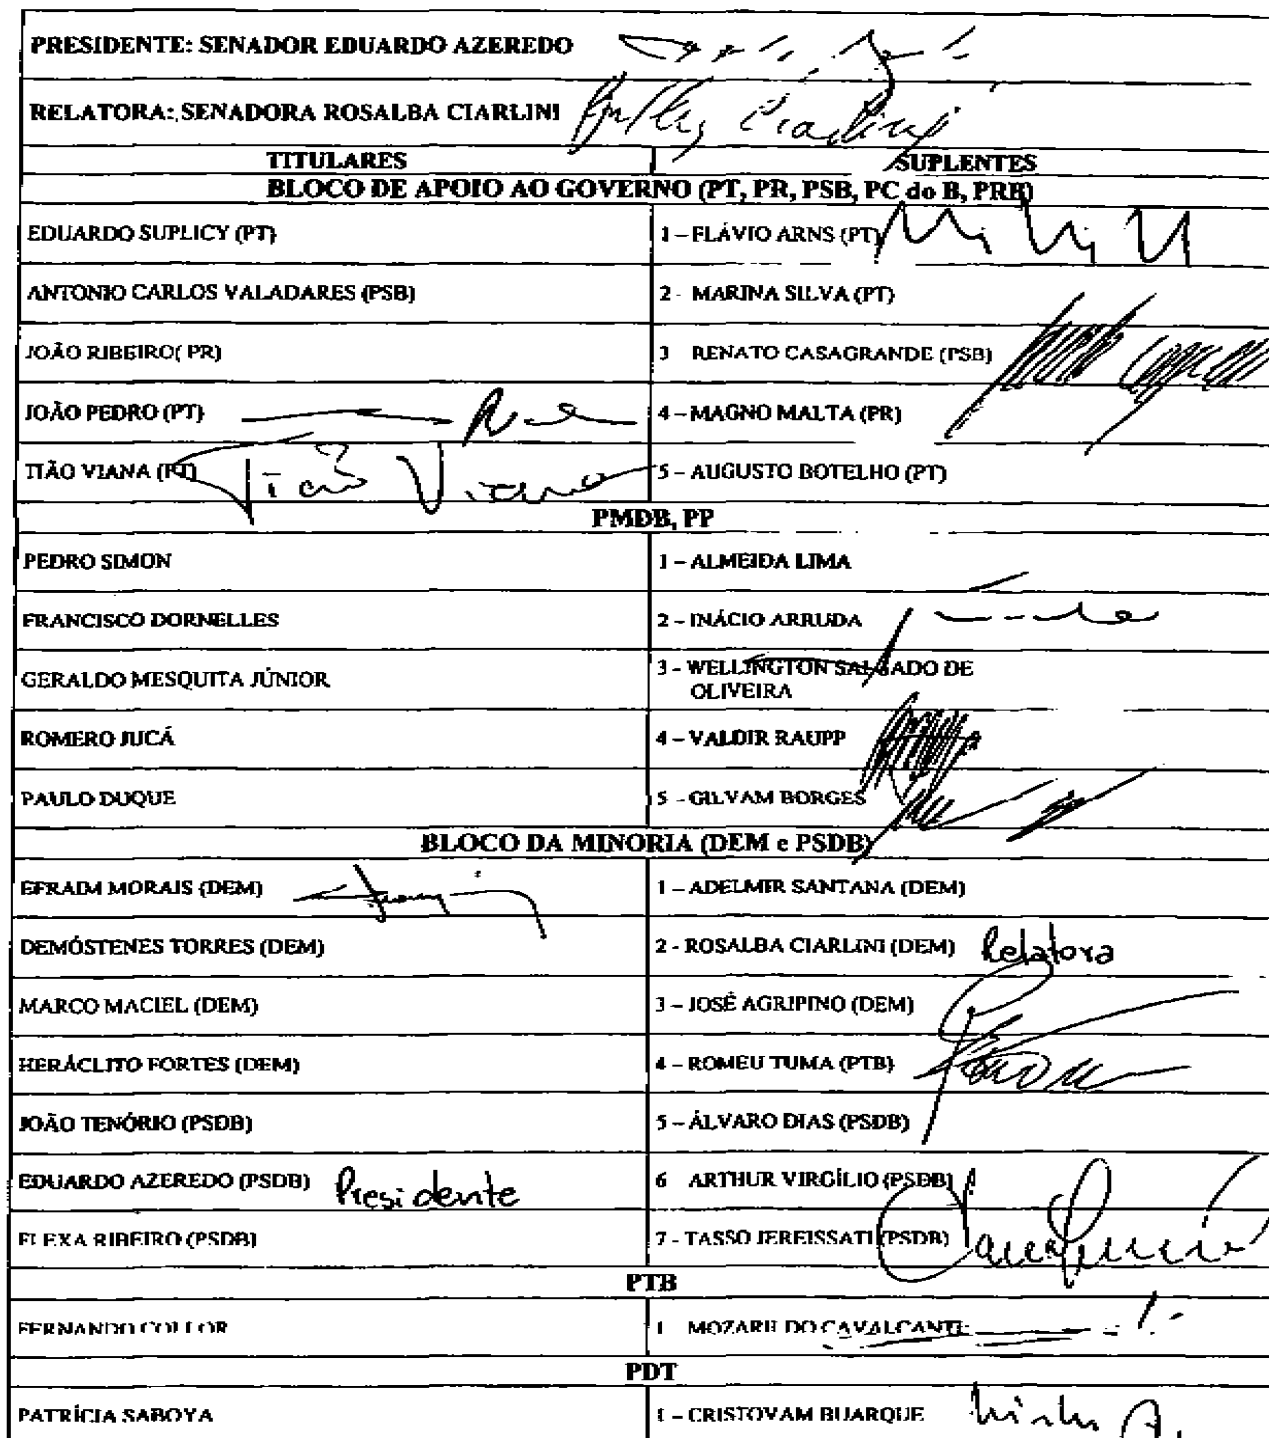 PRESIDENTE: SENADOR EDUARDO AZEREDO
RELATORA: SENADORA ROSALBA CIARLINI Rosalba Ciarlini
TITULARES SUPLENTES
BLOCO DE APOIO AO GOVERNO (PT, PR, PSB, PC do B, PRB)
EDUARDO SUPLICY (PT) 1 – FLÁVIO ARNS (PT)
ANTONIO CARLOS VALADARES (PSB) 2 - MARINA SILVA (PT)
JOÃO RIBEIRO( PR) 3 RENATO CASAGRANDE (PSB)
JOÃO PEDRO (PT) 4 – MAGNO MALTA (PR)
TIÃO VIANA (PT) Tião Viana 5 – AUGUSTO BOTELHO (PT)
PMDB, PP
PEDRO SIMON 1 – ALMEIDA LIMA
FRANCISCO DORNELLES 2 – INÁCIO ARRUDA
GERALDO MESQUITA JÚNIOR 3 - WELLINGTON SALGADO DE
OLIVEIRA
ROMERO JUCÁ 4 – VALDIR RAUPP
PAULO DUQUE 5 - GILVAM BORGES
BLOCO DA MINORIA (DEM e PSDB)
EFRAIM MORAIS (DEM) 1 – ADELMIR SANTANA (DEM)
DEMÓSTENES TORRES (DEM) 2 - ROSALBA CIARLINI (DEM) Relatora
MARCO MACIEL (DEM) 3 – JOSÉ AGRIPINO (DEM)
HERÁCLITO FORTES (DEM) 4 – ROMEU TUMA (PTB)
JOÃO TENÓRIO (PSDB) 5 – ÁLVARO DIAS (PSDB)
EDUARDO AZEREDO (PSDB) Presidente 6 ARTHUR VIRGÍLIO (PSDB)
FLEXA RIBEIRO (PSDB) 7 - TASSO JEREISSATI (PSDB)
PTB
FERNANDO COLLOR 1 MOZARILDO CAVALCANTE
PDT
PATRÍCIA SABOYA 1 – CRISTOVAM BUARQUE